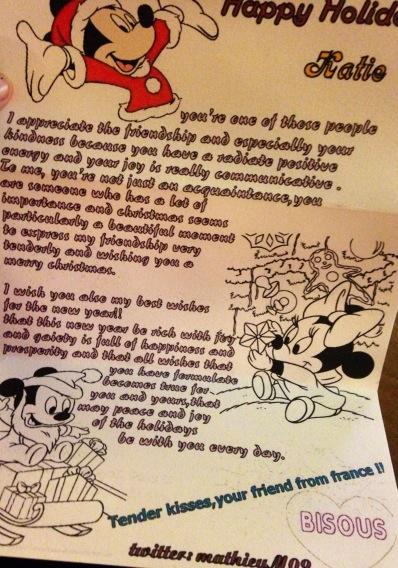 Happy Holid
Katie
you're one of these people
I appreciate the friendship and especially your
kindness because you have a radiate positive
energy and your joy is really communicative .
To me, you're not just an acquaintance,you
are someone who has a lot of
importance and christmas seems
particularly a beautiful moment
to express my friendship very
tenderly and wishing you a
merry christmas.
I wish you also my best wishes
for the new year!!
that this new year be rich with joy
and gaiety is full of happiness and
prosperity and that all wishes that
you have formulate
becomes true for
you and yours,that
may peace and joy
of the holidays
be with you every day.
Tender kisses,your friend from france !!
BISOUS
twitter: mathieu